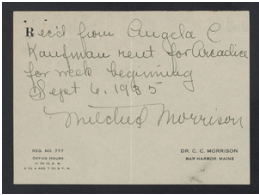 Rec'd from Angela C
Kaufman rent for Arcadia
for week beginning
Sept 6, 1935
Mildred Morrison
REG. NO. 777
OFFICE HOURS
DR. C. C. MORRISON
BAR HARBOR, MAINE